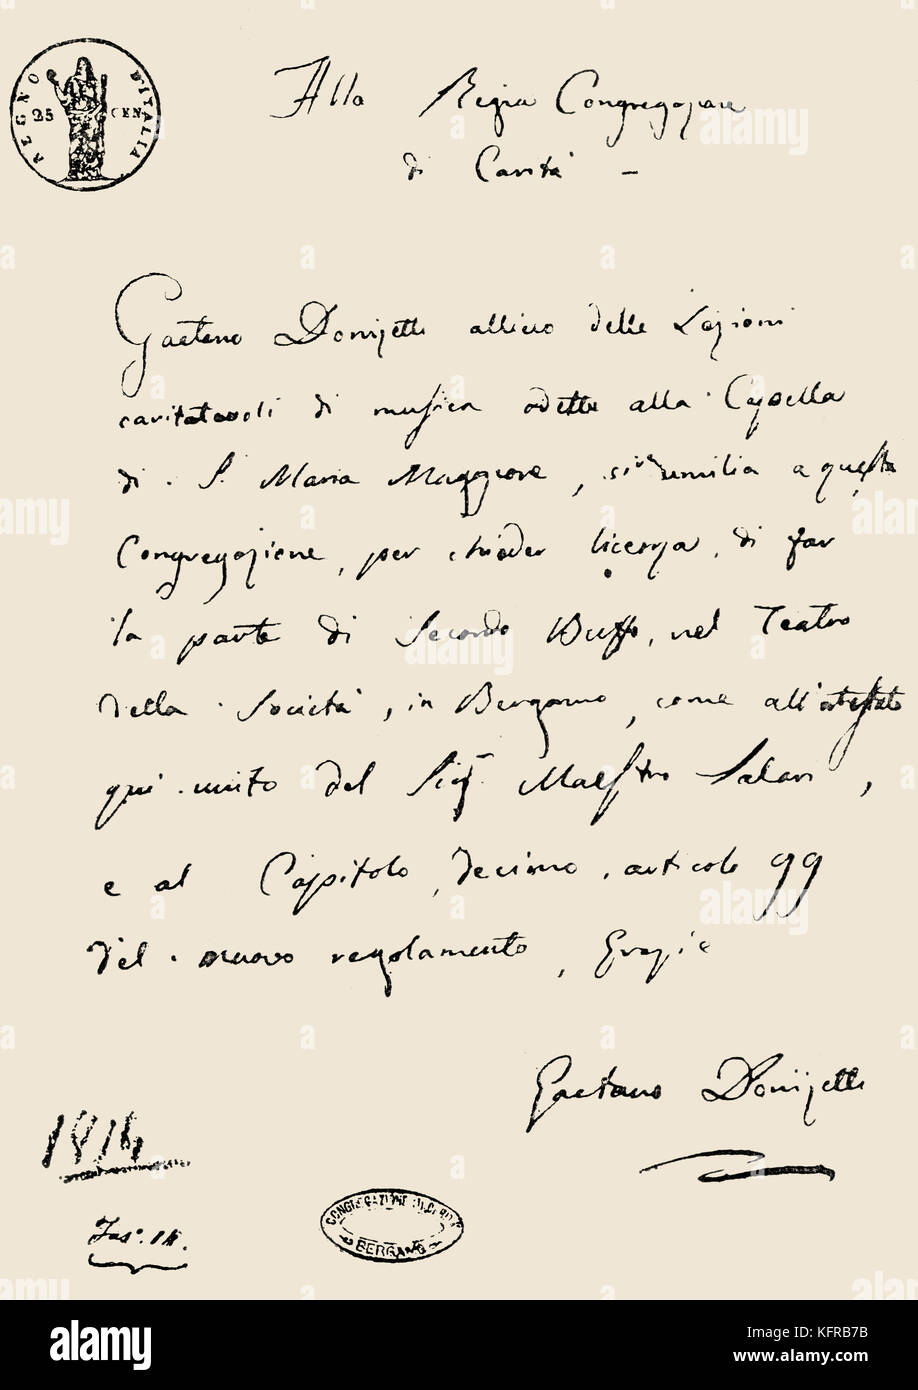 REGNO D'ITALIA
25 CEN.
Alla Regia Congregazione
di Carità -
Gaetano Donizetti allievo delle Lezioni
caritatevoli di musica adette alla Capella
di S. Maria Maggiore, si umilia a questa
Congregazione, per chieder licenza, di far
la parte di Secondo Buffo, nel Teatro
della Società, in Bergamo, come all'attestato
qui unito del Sigr Maestro Salari,
e al Capitolo decimo, articolo 99
del nuovo regolamento, Grazie
Gaetano Donizetti
1814
Fasº. 14.
CONGREGAZIONE DI CARITÀ
BERGAMO
alamy
Image ID: KFRB7B
www.alamy.com